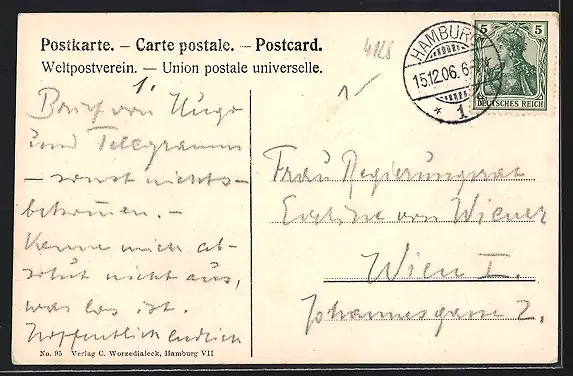 Postkarte. – Carte postale. – Postcard.
Weltpostverein. — Union postale universelle.
4128
1.
1
HAMBURG
15.12.06. 6-7
* 1
5 5
DEUTSCHES REICH
Brief von Hugo
und Telegramm
– sonst nichts
bekommen. –
Kenne mich ab-
solut nicht aus,
was los ist.
Hoffentlich endlich
Frau Regierungsrat
Eveline von Wiener
Wien I.
Johannesgasse 2.
No. 95 Verlag C. Worzedialeck, Hamburg VII